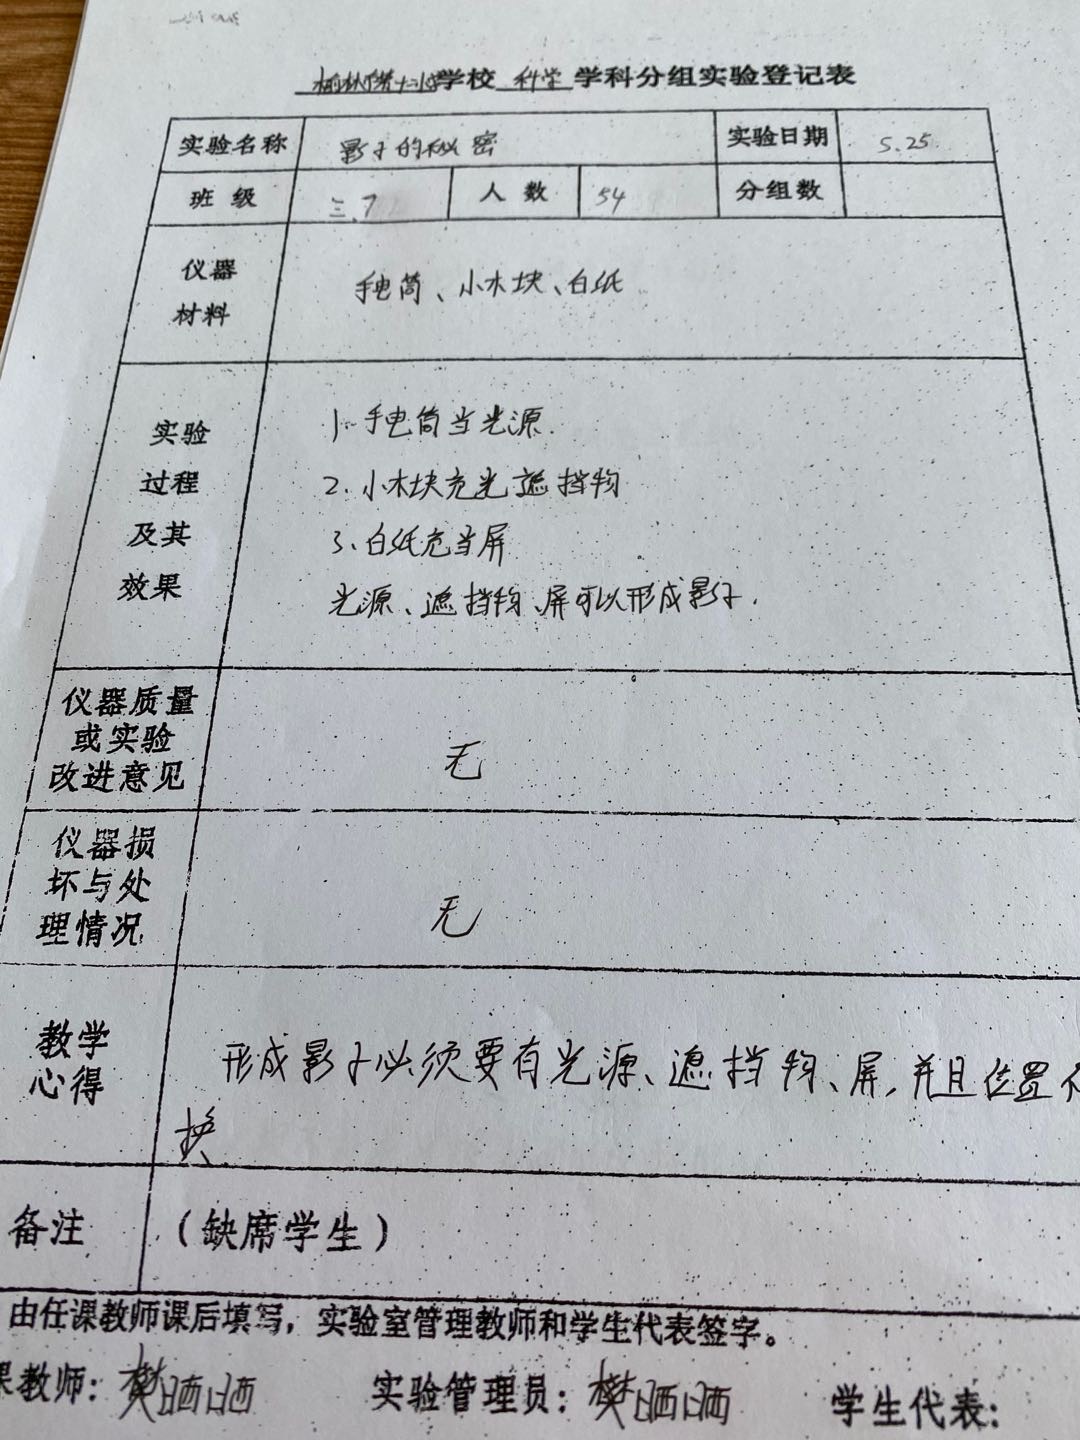 榆林市第十二小学校 科学 学科分组实验登记表
实验名称 影子的秘密 实验日期 5.25
班 级 三.7 人 数 54 分组数
仪器
材料
手电筒、小木块、白纸
实验
过程
及其
效果
1、手电筒当光源.
2、小木块充光遮挡物
3、白纸充当屏
光源、遮挡物、屏可以形成影子.
仪器质量
或实验
改进意见
无
仪器损
坏与处
理情况
无
教学
心得
形成影子必须要有光源、遮挡物、屏,并且位置不
换
备注 (缺席学生)
由任课教师课后填写，实验室管理教师和学生代表签字。
课教师：樊晒晒 实验管理员：樊晒晒 学生代表：